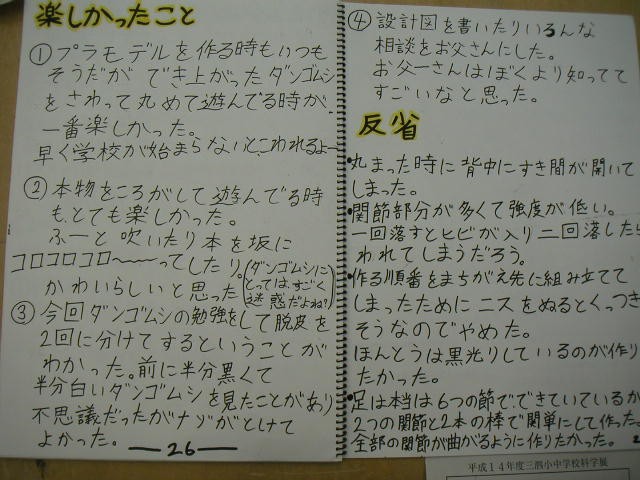 楽しかったこと
① プラモデルを作る時もいつも
そうだが でき上がったダンゴムシ
をさわって丸めて遊んでる時が
一番楽しかった。
早く学校が始まらないと、こわれるよー
② 本物をころがして遊んでる時
も、とても楽しかった。
ふーと吹いたり本を坂に
コロコロコロ〜〜〜ってしたり。
かわいらしいと思った
(ダンゴムシに
とっては、すごく
迷惑だよね?)
③ 今回ダンゴムシの勉強をして脱皮を
2回に分けてするということが
わかった。前に半分黒くて
半分白いダンゴムシを見たことがあり
不思議だったがナゾがとけて
よかった。
26
④ 設計図を書いたりいろんな
相談をお父さんにした。
お父ーさんはぼくより知ってて
すごいなと思った。
反省
•丸まった時に背中にすき間が開いて
しまった。
•関節部分が多くて強度が低い。
一回落すとヒビが入り二回落したら
われてしまうだろう。
•作る順番をまちがえ先に組み立てて
しまったためにニスをぬるとくっつき
そうなのでやめた。
ほんとうは黒光りしているのが作り
たかった。
•足は本当は6つの節で、できているが
2つの関節と2本の棒で関単にして作った。
全部の関節が曲がるように作りたかった。
平成14年度三泗小中学校科学展